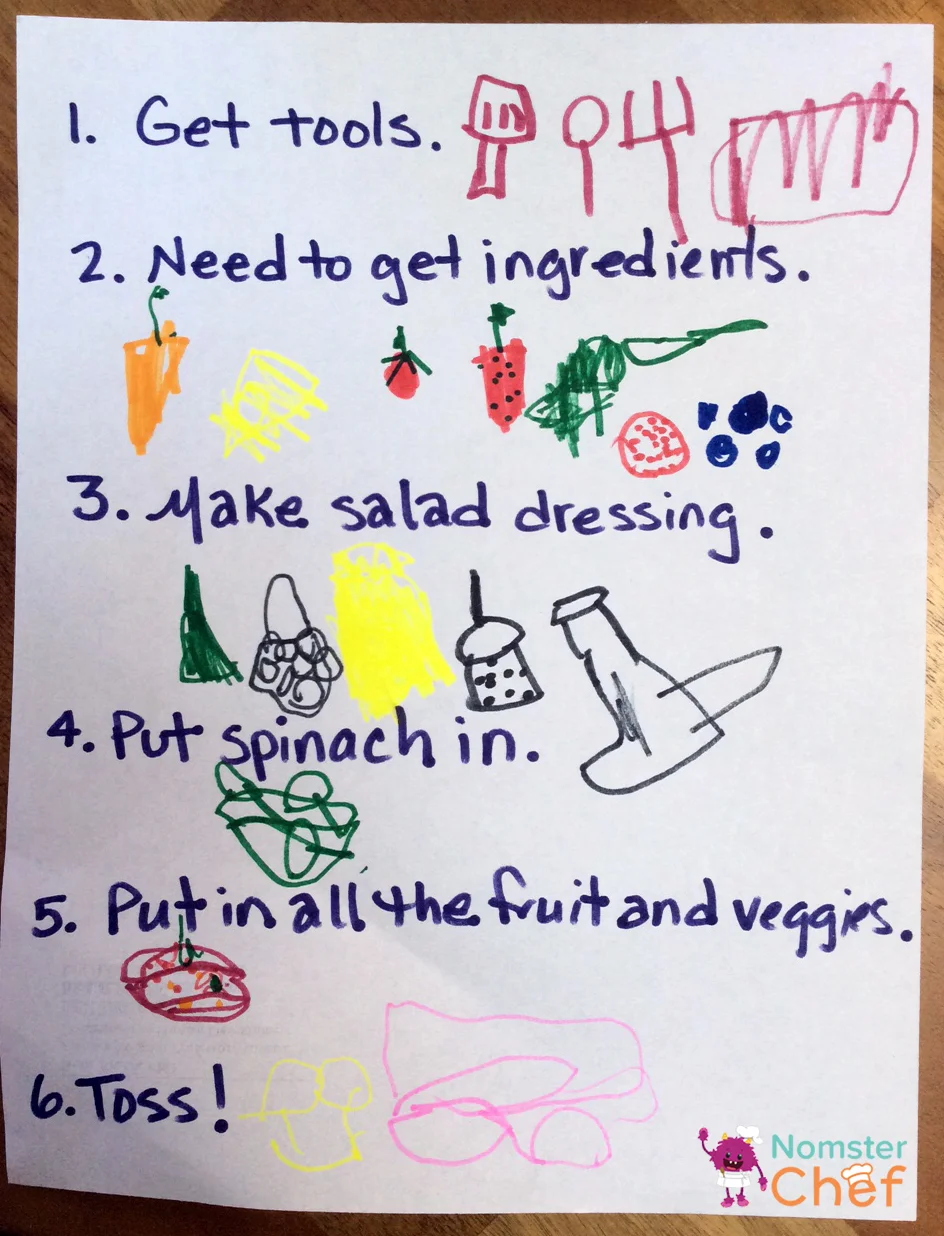 1. Get tools.
2. Need to get ingredients.
3. Make salad dressing.
4. Put spinach in.
5. Put in all the fruit and veggies.
6. Toss!
Nomster
Chef